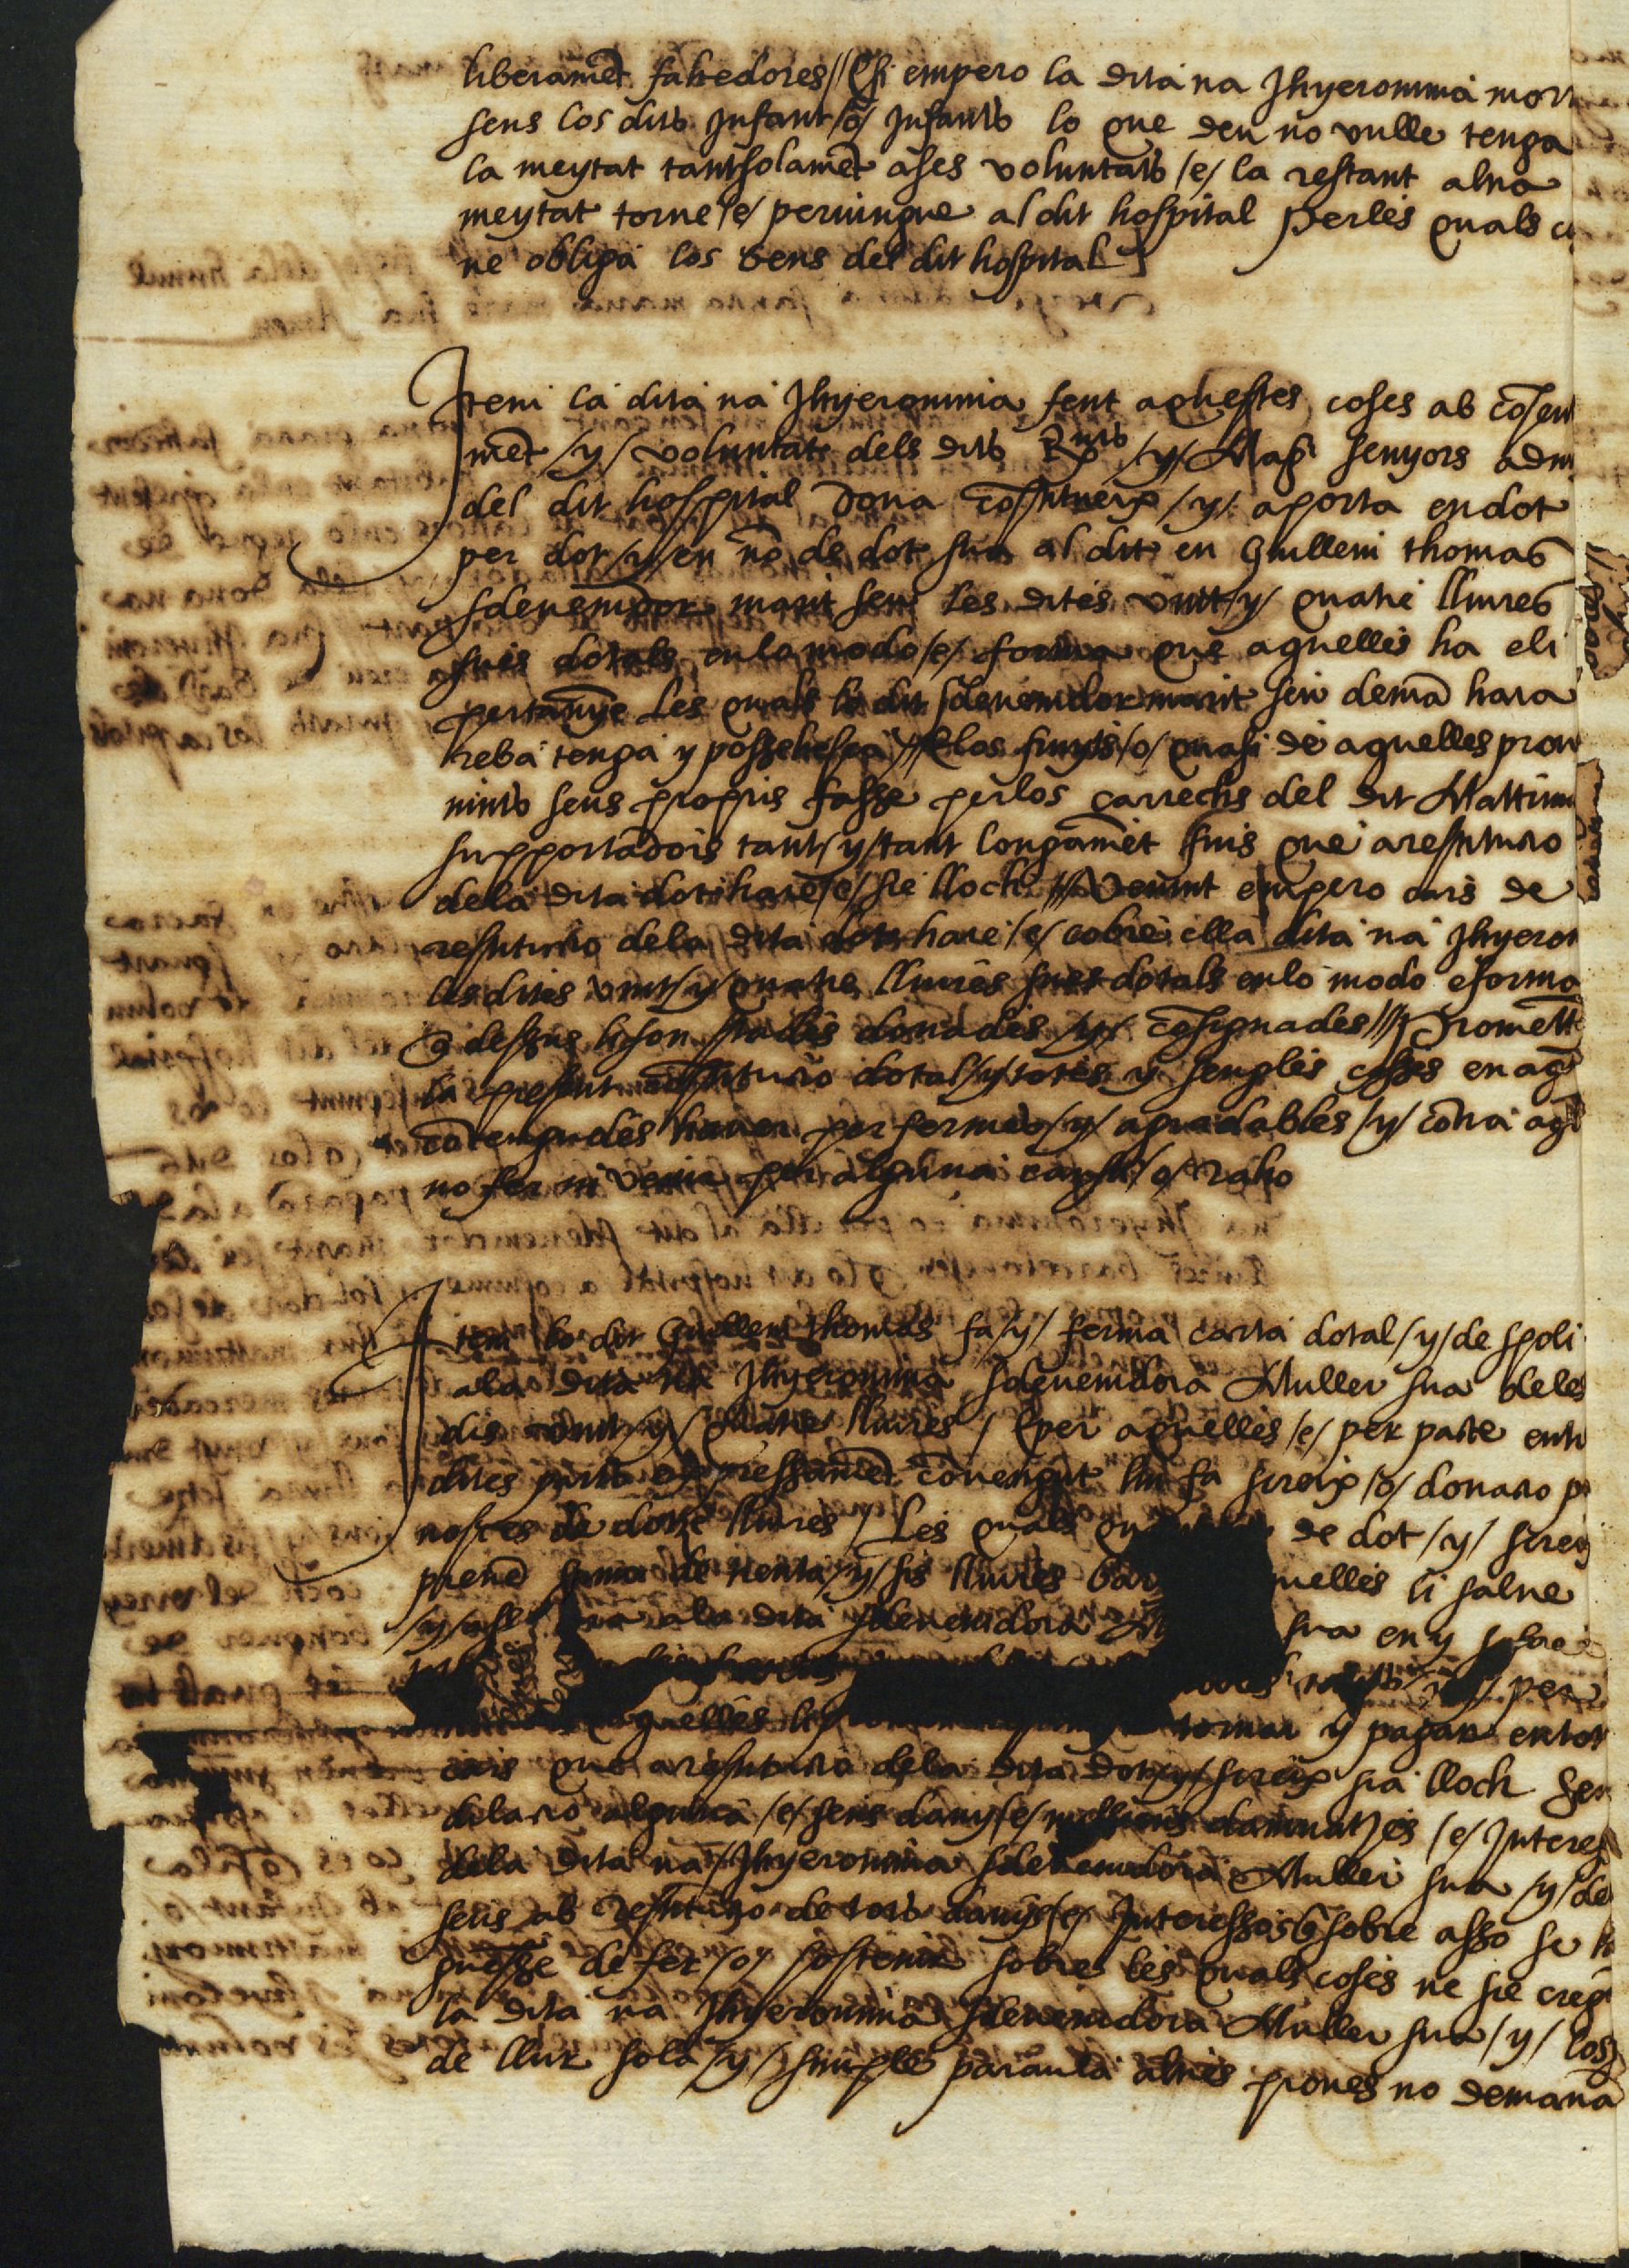 liberamēt fahedores // E si empero la dita na Jhyeronima mor
sens los dits Jnfant /o/ Jnfants lo que deu no vulle tenga
la meytat tantsolamēt a ses voluntats /e/ la restant altra
meytat torne /e/ pervingue al dit hospital Per les quals
ne obliga los bens del dit hospital
Item la dita na Jhyeronima fent aquestes coses ab cōsen
mēt /y/ voluntat dels dits R.nts /y/ Mag.chs senyors adm
del dit hospital Dona cōstitueix /y/ aporta en dot
per dot /y/ en nō de dot sua al dit en Guillem thomas
sdevenidor marit seu les dites vint /y/ quatre lliures
sues dotals en lo modo /e/ forma que aquelles ha e li
pertanye Les quals lo dit sdevenidor marit seu demā hara
reba tenga y possehesca // E los fruyts /o/ quasi de aquelles prov
nints seus propris fasse per los carrechs del dit Mattrim
supportadors tant /y/ tant longamēt fins que a restitutio
de la dita dot hare /e/ sie lloch // Venint empero cas de
restitutio de la dita dot hare /e/ cobre ella dita na Jhyeron
les dites vint /y/ quatre lliures sues dotals en lo modo e forma
q̄ dessus li son stades donades /y/ cōsignades // Promett
la present cōstitutio dotal /y/ totes y sengles coses en aq̄
cōtengudes haver per fermes /y/ agradables /y/ cōtra aq̄
no fer ni venir per alguna causa /o/ raho
Item lo dit Guillem thomas fa /y/ ferma carta dotal /y/ de spoli
a la dita na Jhyeronima sdevenidora Muller sua de les
dites vint /y/ quatre lliures / E per aquelles /e/ per pacte entre
dites parts expressamēt cōvengut lin fa screix /o/ donatio p
noces de dotze lliures / Les quals de dot /y/ screix
prenē suma de trenta /y/ sis lliures aquelles li salve
/y/ a la dita sdevenidora sua en y sobre
/y/ per
aquelles tornar y pagar en tot
cas que a restitutio de la dita dot /y/ screix sia lloch Sens
dilatio alguna /e/ sens dany /e/ messions damnatges /e/ Jnteres
de la dita na Jhyeronima sdevenidora Muller sua /y/ de
seus ab restitutio de tots danys /e/ Jnteressos q̄ sobre asso se
puesse de fer /o/ sostenir sobre les quals coses ne sie creg
la dita na Jhyeronima sdevenidora Muller sua /y/ los
de llur sola /y/ simple paraula altres proves no demana